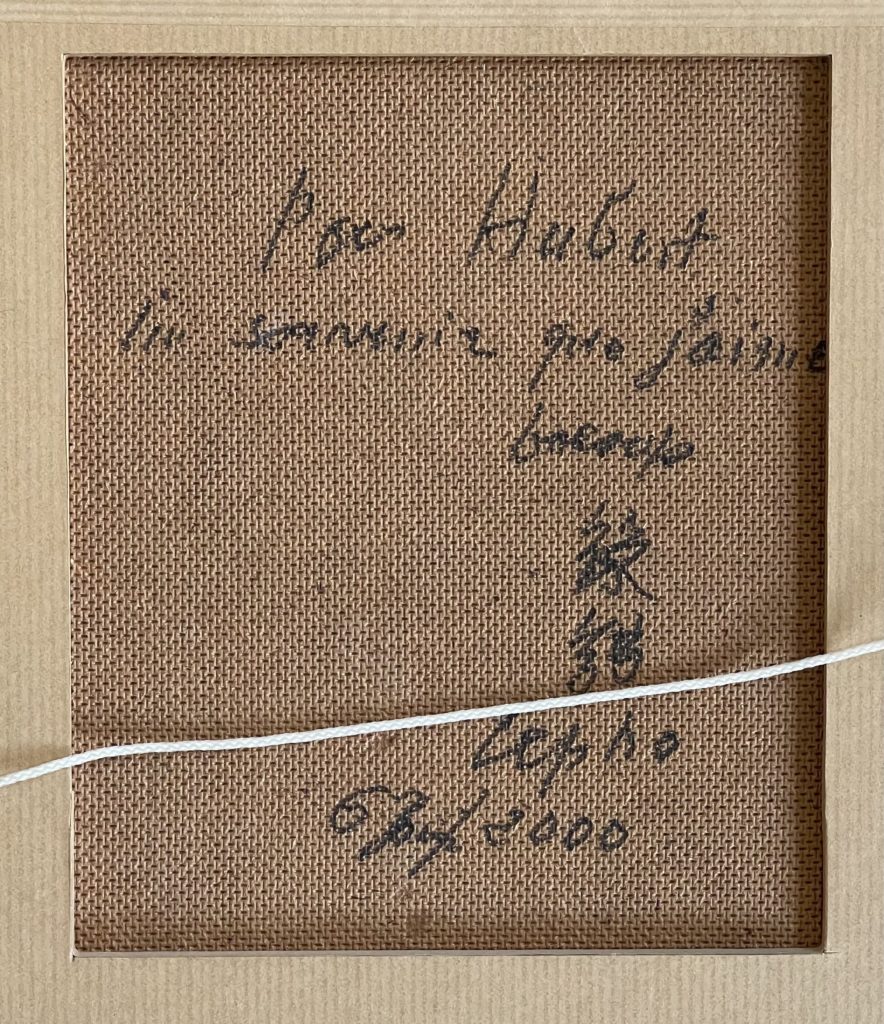 Pour Hubert
Un souvenir que j'aime
beaucoup
黎
譜
Lepho
6 2000